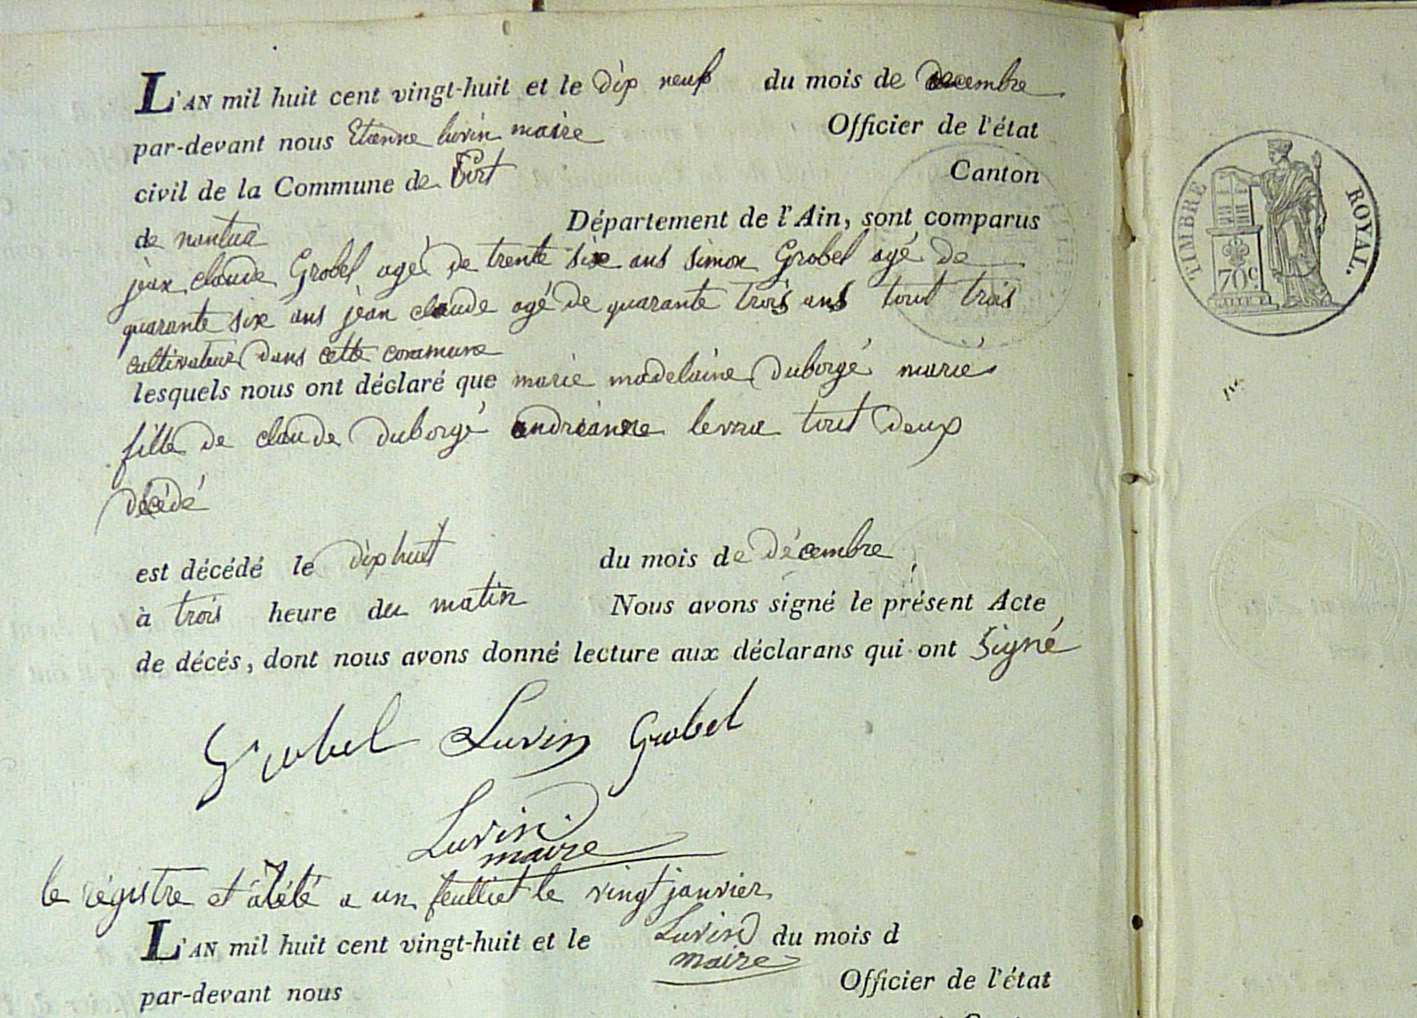 L'AN mil huit cent vingt-huit et le dix neuf du mois de decembre
par-devant nous Etienne Luvin maire Officier de l'état
civil de la Commune de Port Canton
de nantua Département de l'Ain, sont comparus
jean claude Grobel agé de trente six ans simon Grobel agé de
quarante six ans jean claude agé de quarante trois ans tout trois
cultivateur dans cette commune
lesquels nous ont déclaré que marie madelaine Duborgé marié
fille de claude Duborgé andrianne tout deux
décédé
est décédé le dix huit du mois de décembre
à trois heure du matin Nous avons signé le présent Acte
de décés, dont nous avons donné lecture aux déclarans qui ont Signé
Grobel Luvin Grobel
Luvin
maire
le régistre et a un feulliet le vingt janvier
L'AN mil huit cent vingt-huit et le Luvin du mois d
maire
par-devant nous Officier de l'état
TIMBRE ROYAL.
70c